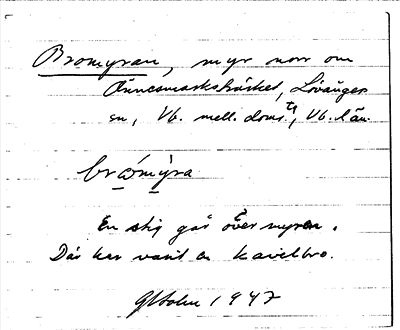 Bromyran, myr norr om
Ånnesmarksträsket, Lövånger
sn, Vb. mell. doms., Vb. län.
bro̱my̱ra
En stig går över myren.
Där har varit en kavelbro.
GHolm 1947